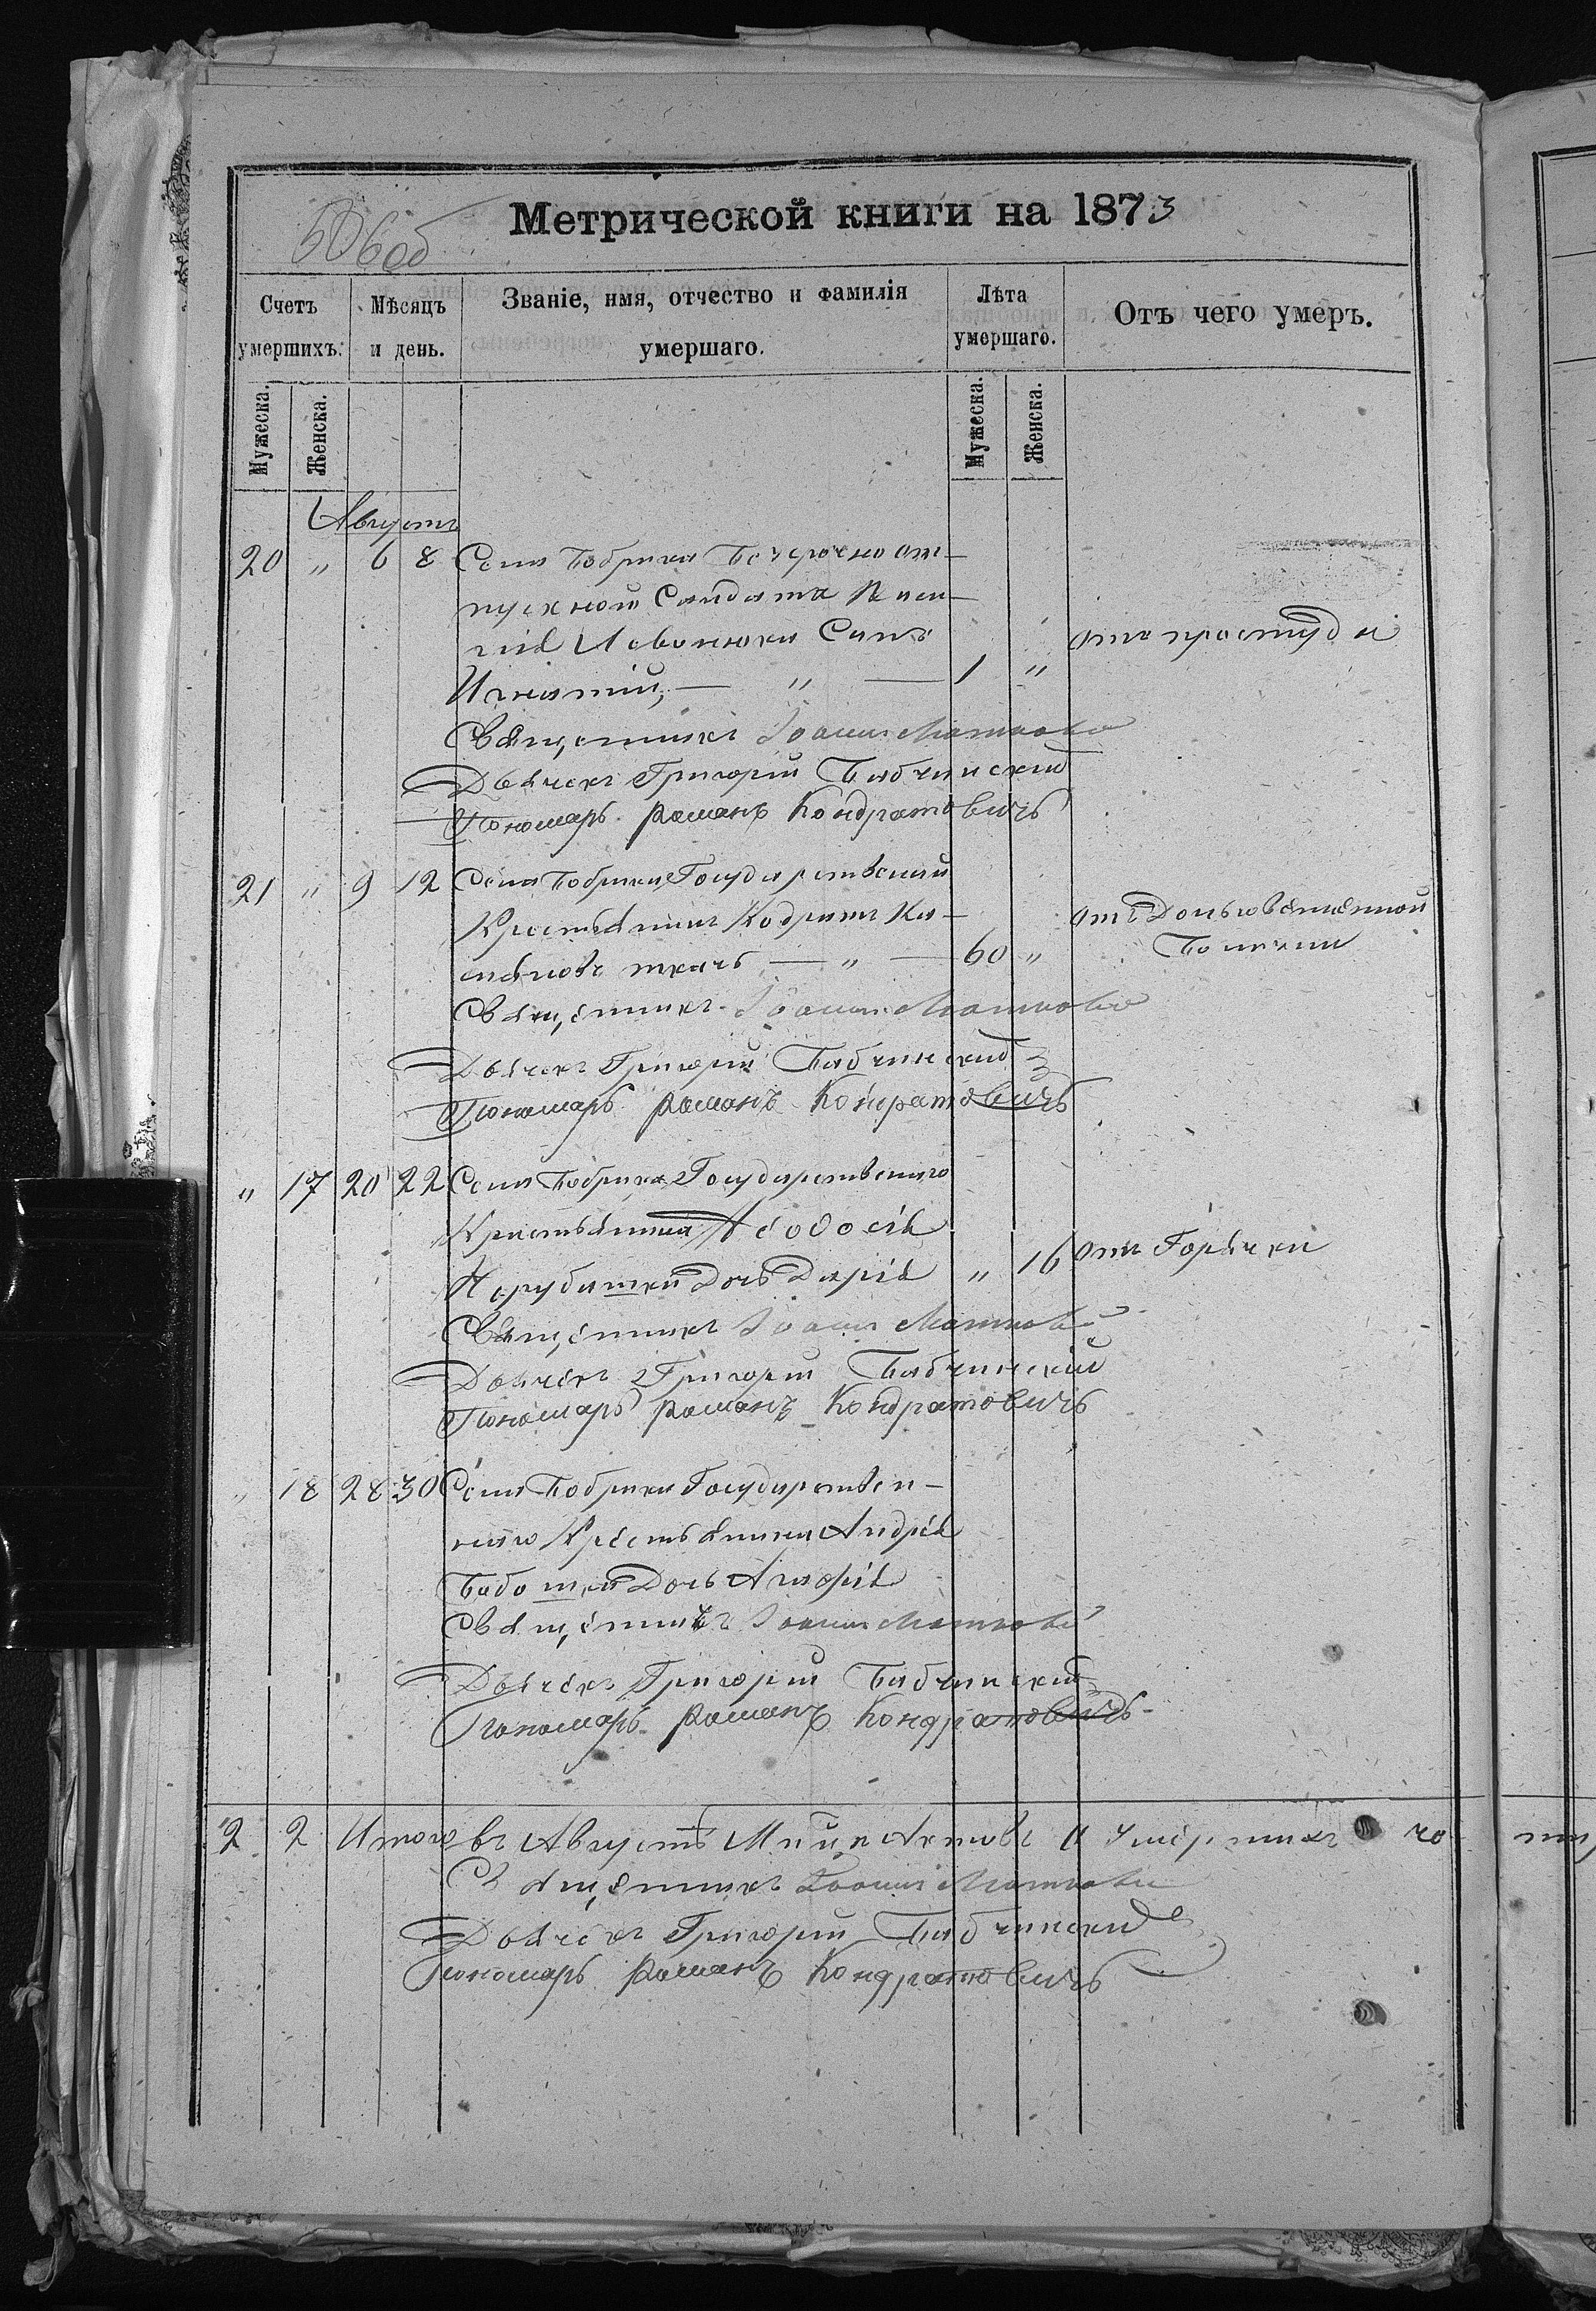 506об
Метрической книги на 1873
Счетъ умершихъ.
Мѣсяцъ и день.
Званіе, имя, отчество и фамилія умершаго.
Лѣта умершаго.
Отъ чего умеръ.
Мужеска.
Женска.
Мужеска.
Женска.
Августъ
20 „ 6 8 Села Бобрика Безсрочно от-
пускной Салдата Васи-
лія Сынъ
отъ простуды
Игнатій, — „ — 1 „
Священникъ Іоаннъ
Дьячекъ Григорій Бабчинскій
Пономарь Романъ Кондратовичъ
21 „ 9 12 Села Бобрика Государственый
Крестьянинъ
ткачъ — „ — 60 „
отъ
Болезни
Священникъ Іоаннъ
Дьячекъ Григорій Бабчинскій
Пономарь Романъ Кондратовичъ
„ 17 20 22 Села Бобрика Государственаго
Крестьянина Ѳеодосія
Дочь Дарія „ 16 отъ Горячки
Священникъ Іоаннъ
Дьячекъ Григорій Бабчинскій
Пономарь Романъ Кондратовичъ
„ 18 28 30 Села Бобрика Государствен-
наго Крестьянина Андрея
Дочь
Священникъ Іоаннъ
Дьячекъ Григорій Бабчинскій
Пономарь Романъ Кондратовичъ
2 2 Итого въ Августѣ М-цѣ Актовъ 4 Умершихъ
Священникъ Іоаннъ
Дьячекъ Григорій Бабчинскій
Пономарь Романъ Кондратовичъ